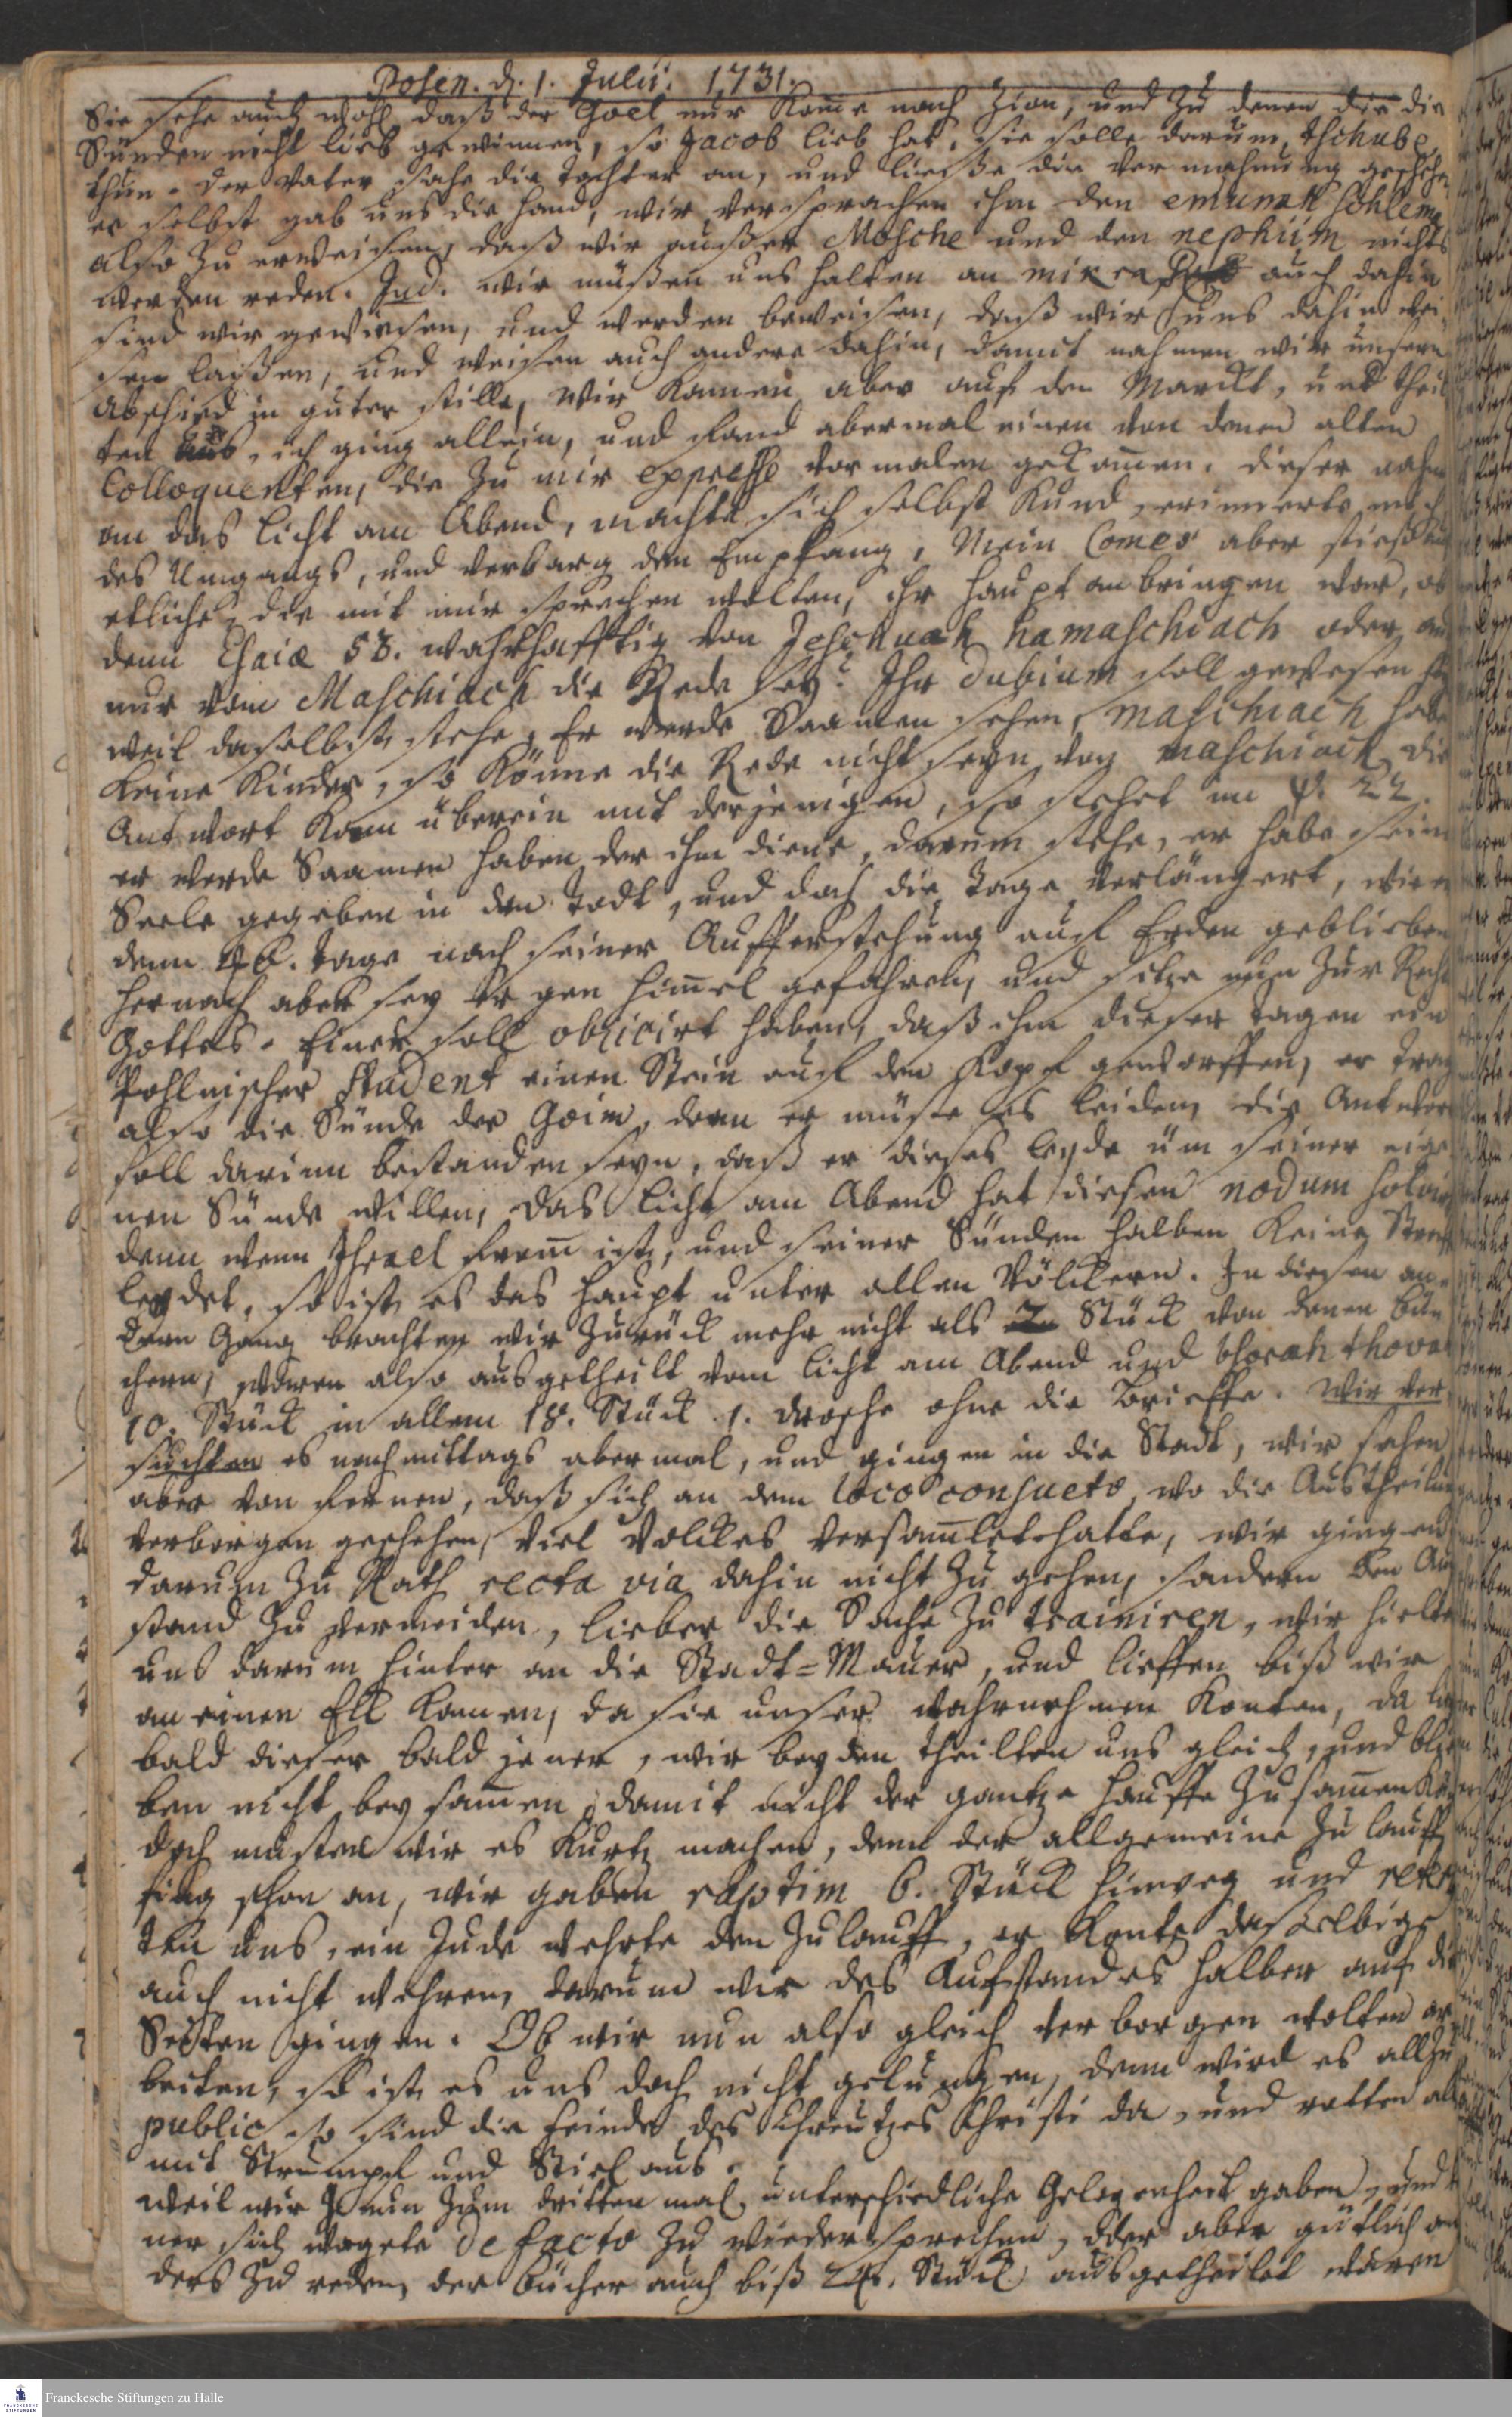 Posen. d. 1. Julii. 1731.
Sie sehe auch wohl, daß der Goel nur Kome nach Zion, und zu denen die die
Sünden nicht lieb gewinnen, so Jacob lieb hat, sie solle darum tschube
thun. der Vater sahe die Tochter an, und ließe die Vermahnung geschehen
er selbst gab uns die hand, wir versprachen ihm den emunah schlema
also zu erweisen, daß wir außer Mosche und den nephiim nichts
werden reden. Jud. wir müßen uns halten an mikra auch dahin
sind wir gewiesen, und werden beweisen, daß wir uns dahin wei
sen laßen, und weisen auch andere dahin, damit nahmen wir unsern
Abschied in guter stille, Wir kamen aber auf den Marckt, und theil
ten uns, ich ging allein, und fand abermal einen von denen alten
Colloquenten, die zu mir expresse vormalen gekomen. dieser nahm
an das Licht am Abend, machte sich selbst kund, erinnerte mich
des Umgangs, und verbarg den Empfang. Mein Comes aber stieß auf
etliche, die mit mir sprechen wolten, ihr Haupt anbringen war, ob
denn Esaiæ 53. wahrhafftig von Jeschuah hamaschiach oder
nur vom Maschiach die Rede sey? Ihr dubium soll gewesen
weil daselbst stehe, Er werde Saamen sehen, maschiach habe
keine Kinder, so könne die Rede nicht seyn von maschiach, die
Antwort kam überein mit derjenigen, so stehet im ψ. 22.
er werde Saamen haben der ihm diene, darum stehe, er habe sein
Seele gegeben in den Todt, und doch die Tage verlängert, wie er
denn 40. Tage nach seiner Aufferstehung auf Erden geblieben
hernach aber sey er gen Himel gefahren, und sitze nun zur Recht
Gottes. Einer soll obiicirt haben, daß ihm dieser Tagen ein
Pohlnischer student einen Stein auf den Kopf geworffen, er trag
also die Sünde der Goim, denn er müste es leiden, die Antwort
soll darinn bestanden seyn, daß er dieses leyde um seiner eige
nen Sünde willen, das Licht am Abend hat diesen nodum
denn wenn Israel from ist, und seiner Sünden halben keine Straff
leydet, so ist es das Haupt unter allen Völckern. In diesem an
dern Gang brachten wir zurück mehr nicht als 2 Stück von denen Bü
chern, waren also ausgetheilt vom Licht am Abend und thorah thova
10. Stück in allem 18. Stück 1. drosche ohne die Brieffe. Wir ver
suchten es nachmittags abermal, und gingen in die Stadt, wir sahen
aber von fernen, daß sich an dem loco consueto, wo die Austheilung
verborgen geschehen, viel Volckes versamlet hatte, wir gingen
darum zu Rath recta via dahin nicht zu gehen, sondern den Auf
stand zu vermeiden, lieber die Sache zu trainiren, wir hielten
uns darum hinter an die Stadt=Mauer, und lieffen biß wir
an einen Eck kamen, da sie unser wahrnehmen konten, da
bald dieser bald jener, wir beyden theilten uns gleich, und blie
ben nicht beysamen, damit nicht der gantze hauffe zusamen
doch musten wir es kurtz machen, denn der allgemeine Zulauff
fing schon an, wir gaben raptim 6. Stück hinweg und
ten uns, ein Jude wehrte den Zulauff, er konte daselbige
auch nicht wehren, darum wir des Aufstandes halber auf die
Seiten gingen. Ob wir nun also gleich verborgen wolten ar
beiten, so ist es uns doch nicht gelungen, denn wird es allzu
public so sind die feinde des Kreutzes Christi da, und rotten
mit Strumpf und Stiel aus.
Weil wir nun zum dritten mal unterschiedliche Gelegenheit gaben, und
ner sich wagete de facto zu wiedersprechen, oder aber gütlich an
ders zu reden, der Bücher auch biß 24. Stück ausgetheilet waren
Franckesche Stiftungen zu Halle